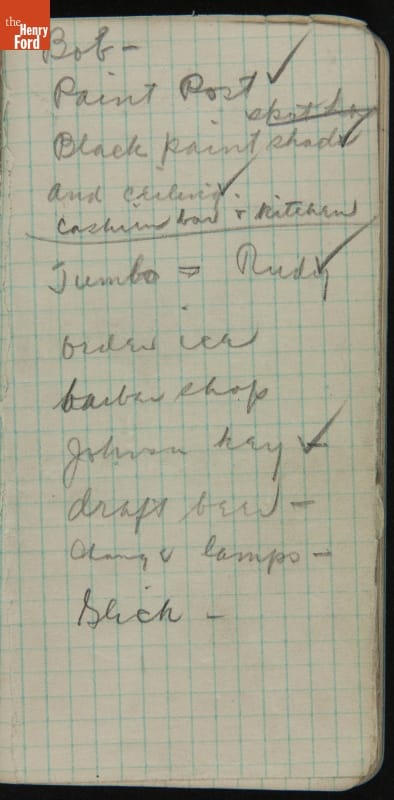 the
Henry
Ford
Bob -
Paint Post ✓
Black paint shade ✓
and ceiling ✓
Cashier bar & Kitchen
Jumbo = Rudy ✓
order ice
barber shop
Johnson key ✓
draft beer -
Change lamps -
Glick -